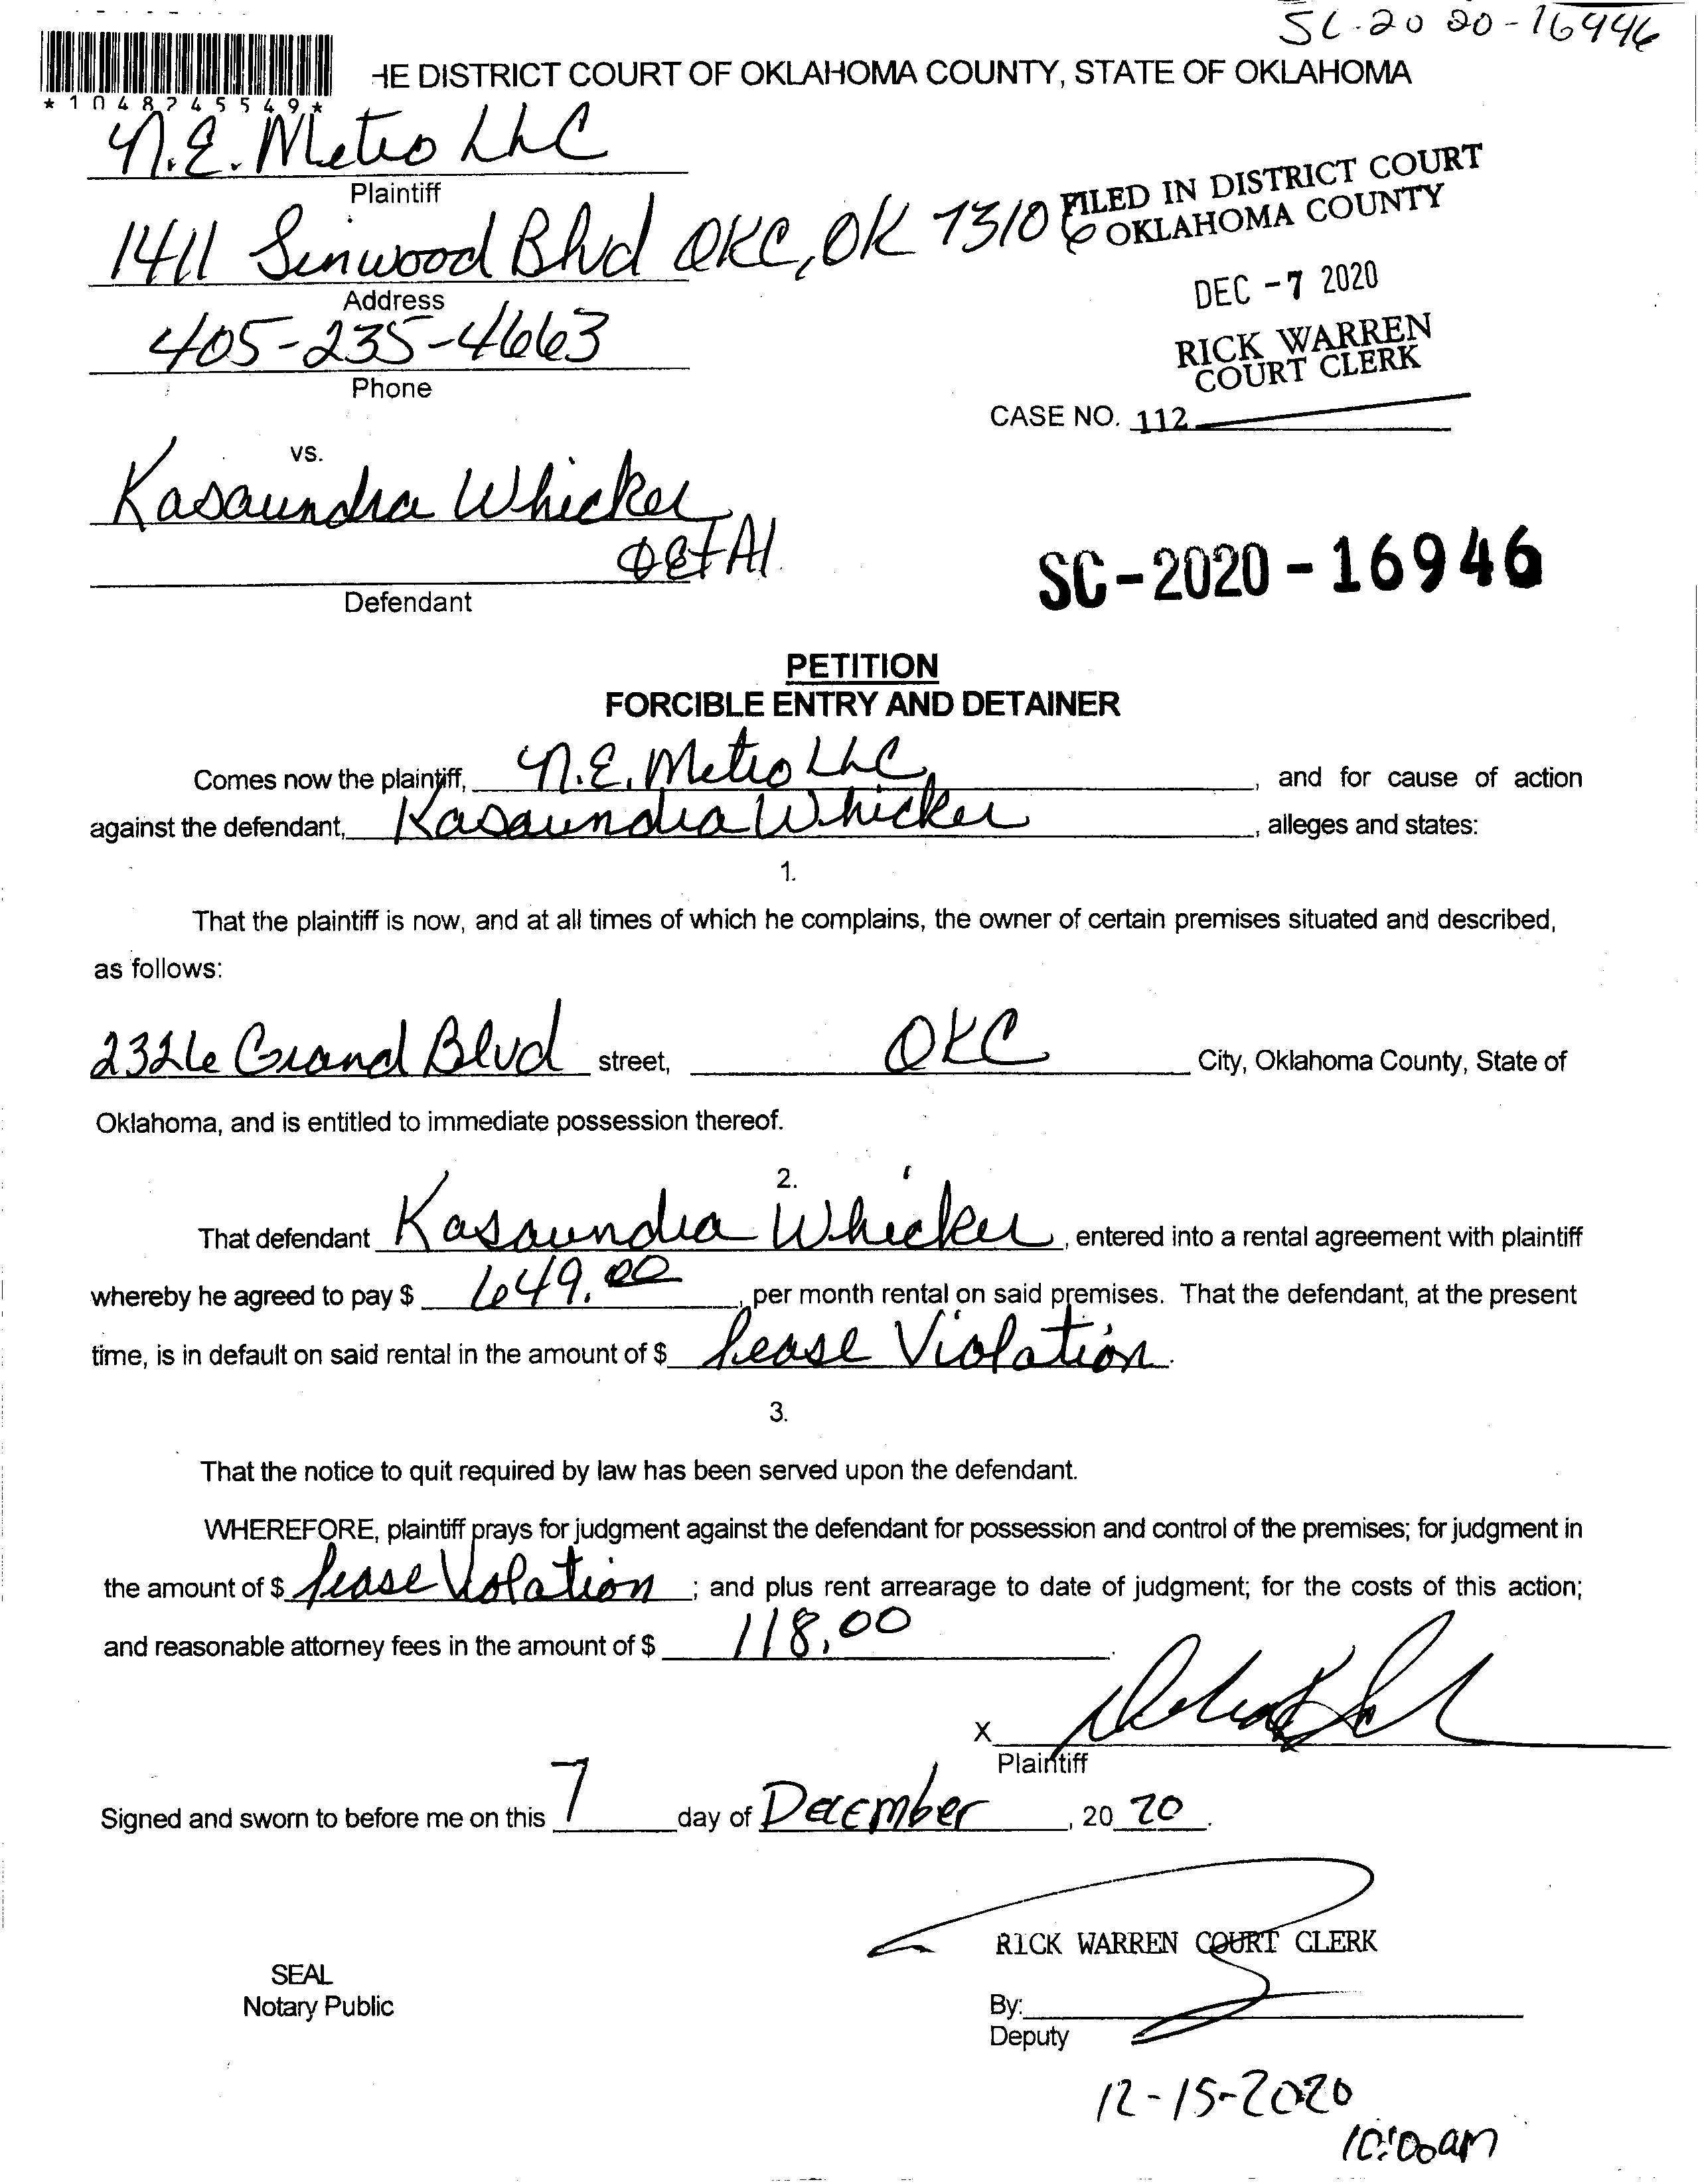 SC-2020-16946
HE DISTRICT COURT OF OKLAHOMA COUNTY, STATE OF OKLAHOMA
*1048745549*
N.E. Metro LLC
Plaintiff
FILED IN DISTRICT COURT
OKLAHOMA COUNTY
1411 Blvd OKC, OK 73106
Address
DEC -7 2020
405-235-4663
Phone
RICK WARREN
COURT CLERK
CASE NO. 112
vs.
Kasaundra Whicker
Et Al.
Defendant
SC-2020-16946
PETITION
FORCIBLE ENTRY AND DETAINER
Comes now the plaintiff, N.E. Metro LLC, and for cause of action
against the defendant, Kasaundra Whicker, alleges and states:
1.
That the plaintiff is now, and at all times of which he complains, the owner of certain premises situated and described,
as follows:
2326 Grand Blvd street, OKC City, Oklahoma County, State of
Oklahoma, and is entitled to immediate possession thereof.
2.
That defendant Kasaundra Whicker, entered into a rental agreement with plaintiff
whereby he agreed to pay $ 649.00, per month rental on said premises. That the defendant, at the present
time, is in default on said rental in the amount of $ Lease Violation.
3.
That the notice to quit required by law has been served upon the defendant.
WHEREFORE, plaintiff prays for judgment against the defendant for possession and control of the premises; for judgment in
the amount of $ Lease Violation; and plus rent arrearage to date of judgment; for the costs of this action;
and reasonable attorney fees in the amount of $ 118.00.
X
Plaintiff
Signed and sworn to before me on this 7 day of December, 2020.
RICK WARREN COURT CLERK
SEAL
Notary Public
By:
Deputy
12-15-2020
10:00am